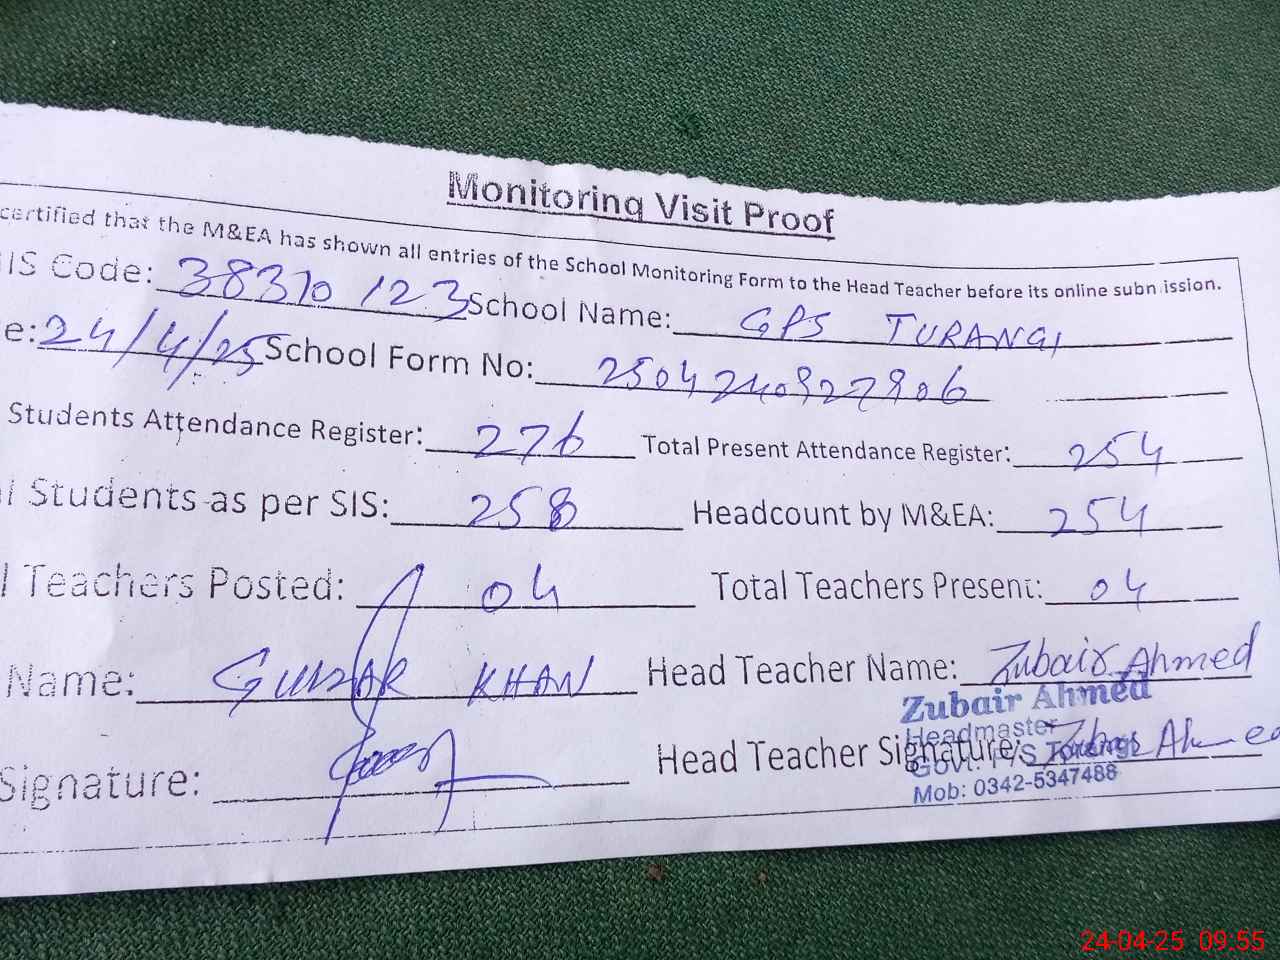 Monitoring Visit Proof
certified that the M&EA has shown all entries of the School Monitoring Form to the Head Teacher before its online submission.
IS Code: 38310 123 School Name: GPS TURANGI
e: 24/4/25 School Form No:
Students Attendance Register: 276 Total Present Attendance Register: 254
l Students as per SIS: 258 Headcount by M&EA: 254
l Teachers Posted: 04 Total Teachers Present: 04
Name: GULZAR KHAN Head Teacher Name: Zubair Ahmed
Zubair Ahmed
Headmaster
Signature: Head Teacher Signature: Zubair Ahmed
Govt. P/S Torangi
Mob: 0342-5347488
24-04-25 09:55